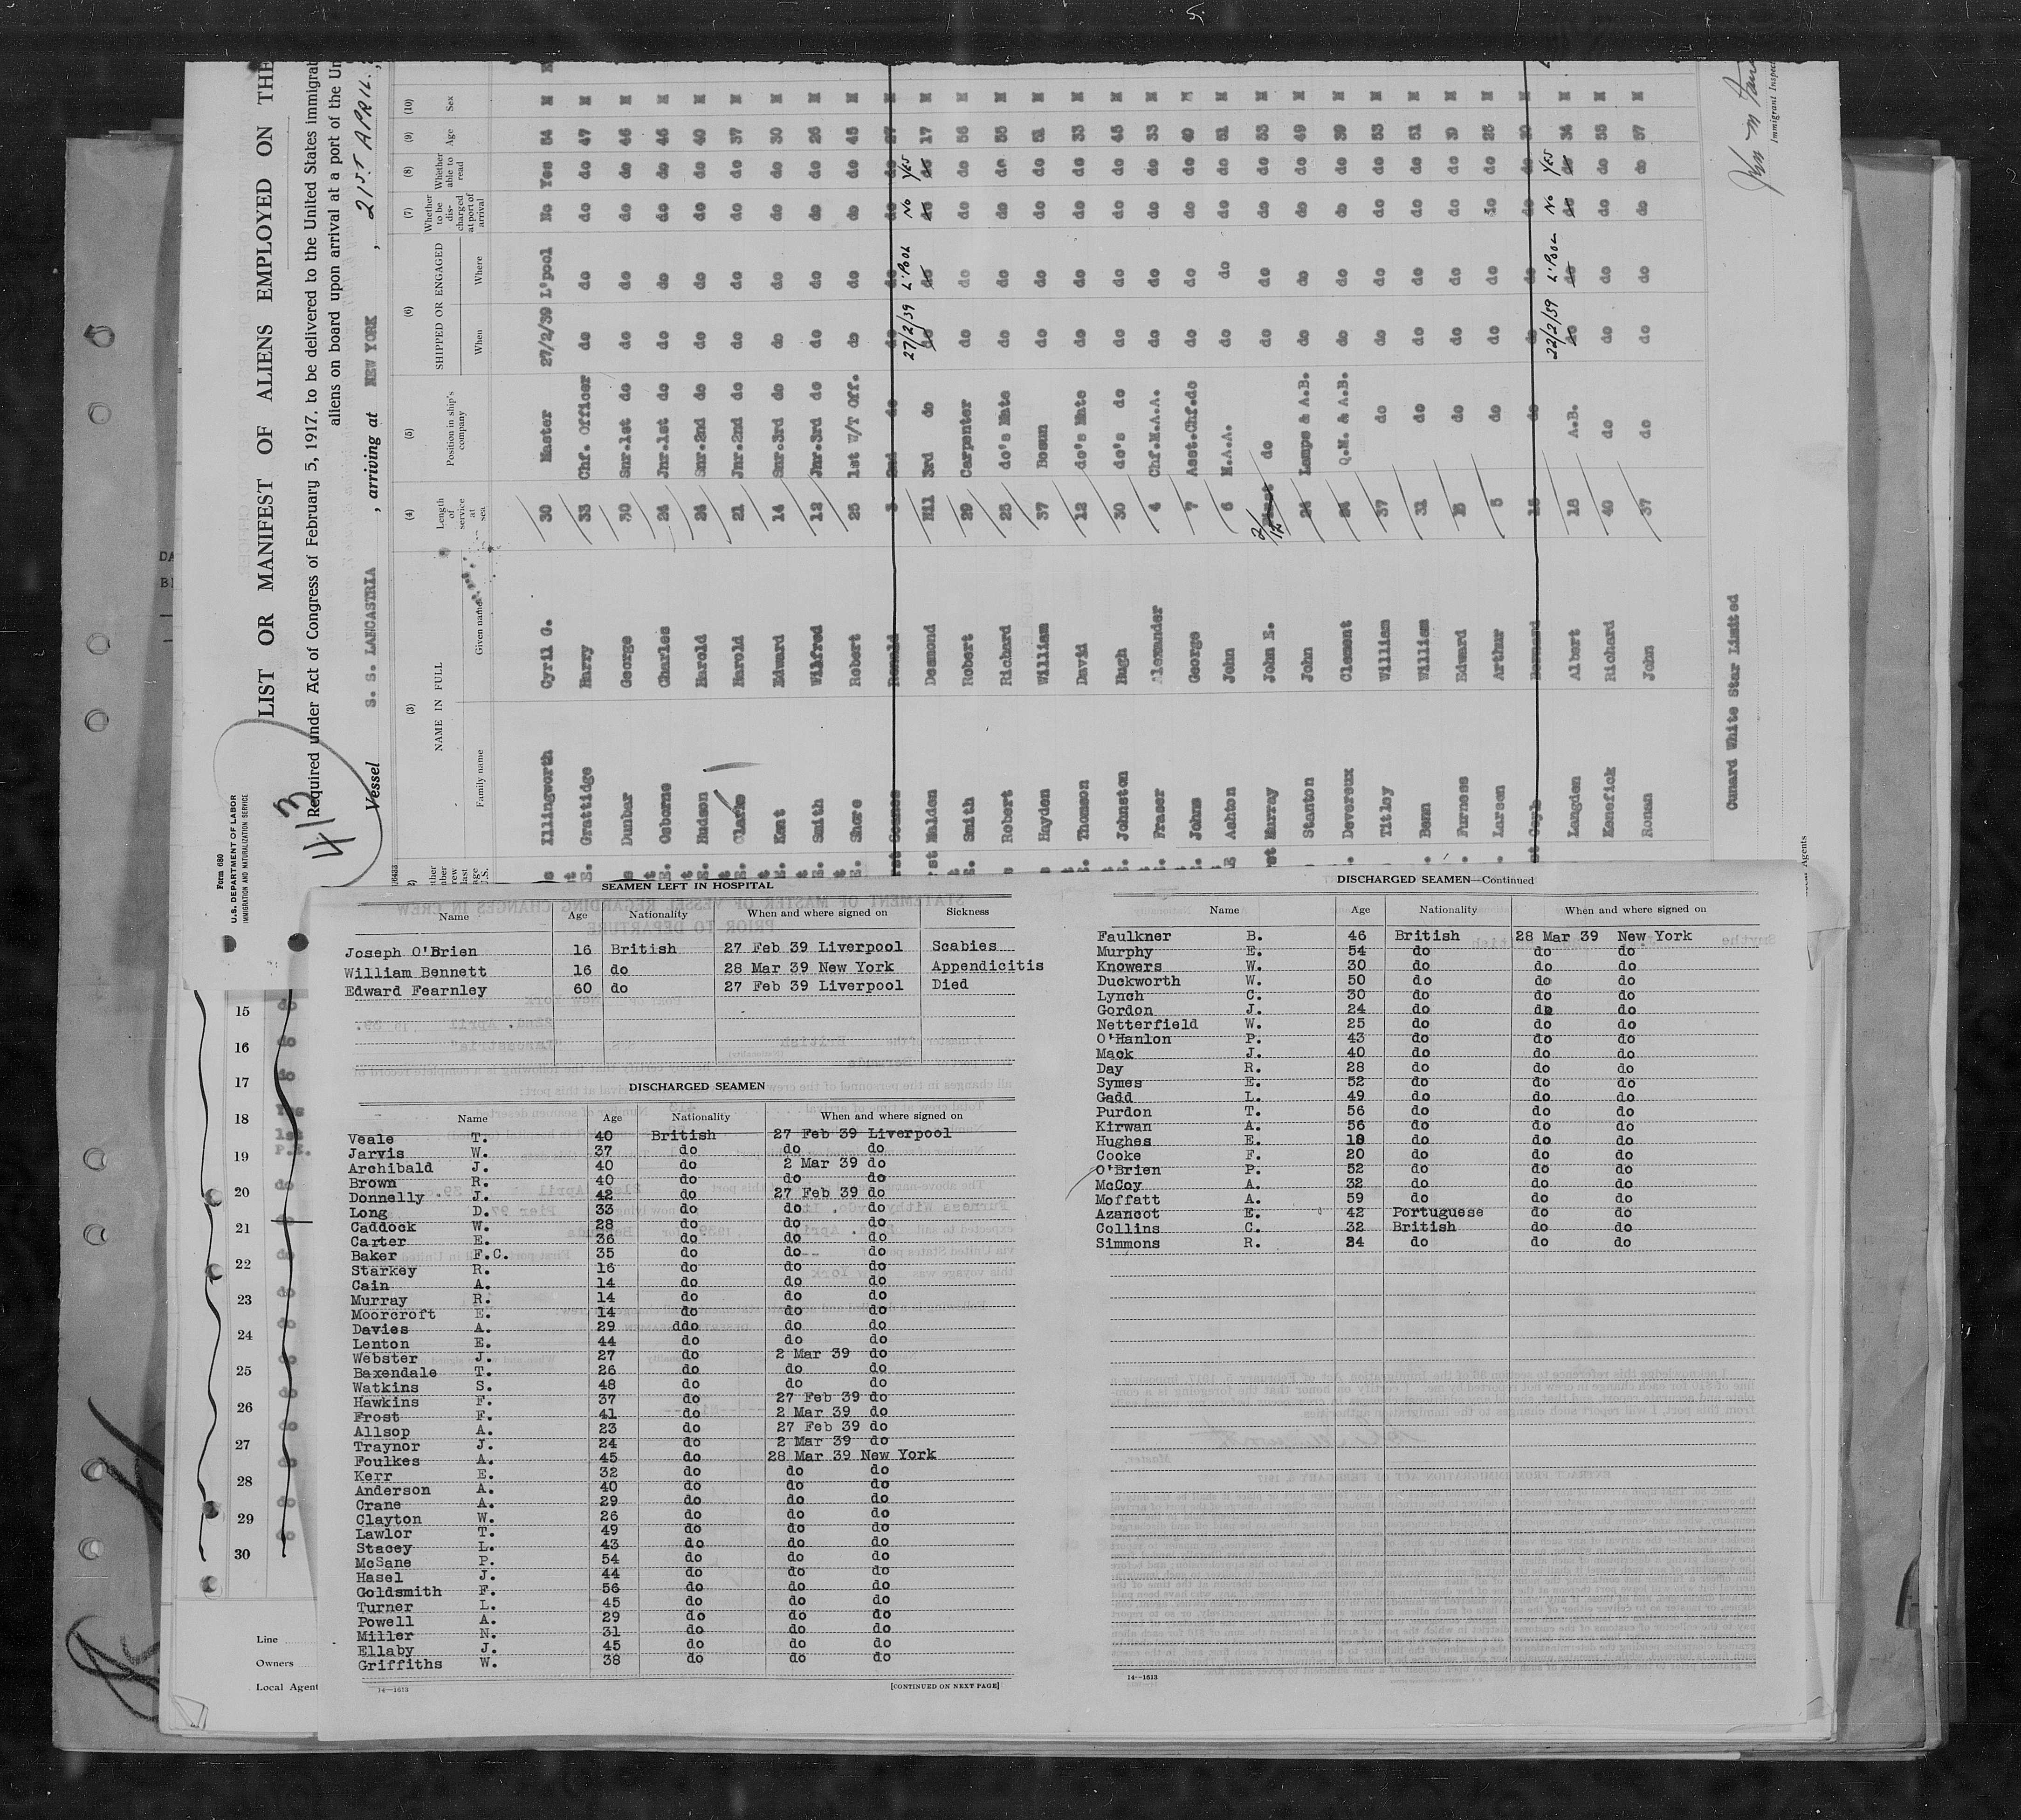 LIST OR MANIFEST OF ALIENS EMPLOYED ON THE
Required under Act of Congress of February 5, 1917, to be delivered to the United States immigrat
aliens on board upon arrival at a port of the Un
Form 680
U.S. DEPARTMENT OF LABOR
IMMIGRATION AND NATURALIZATION SERVICE
413
Vessel S. S. LANCASTRIA , arriving at NEW YORK , 21ST APRIL.
(3) (4) (5) (6) (7) (8) (9) (10)
NAME IN FULL Length of service at sea Position in ship's company SHIPPED OR ENGAGED Whether to be discharged at port of arrival Whether able to read Age Sex
Family name Given name When Where
Illingworth Cyril G. 30 Master 27/2/39 L'pool No Yes 54 M
Grattidge Harry 33 Chf. Officer do do do do 47 M
Dunbar George 30 Snr.1st do do do do do 46 M
Osborne Charles 24 Jnr.1st do do do do do 46 M
Hudson Harold 24 Snr.2nd do do do do do 40 M
Clarke Harold 21 Jnr.2nd do do do do do 37 M
Kent Edward 14 Snr.3rd do do do do do 30 M
Smith Wilfred 12 Jnr.3rd do do do do do 26 M
Shore Robert 25 1st W/T Off. do do do do 45 M
Ronald 3 2nd do do do do do 27 M
Malden Desmond Nil 3rd do 27/2/39 L'POOL No YES 17 M
Smith Robert 29 Carpenter do do do do 56 M
Robert Richard 25 do's Mate do do do do 55 M
Hayden William 37 Bosun do do do do 51 M
Thomson David 12 do's Mate do do do do 33 M
Johnston Hugh 30 do's do do do do do 45 M
Fraser Alexander 4 Chf.M.A.A. do do do do 33 M
Johns George 7 Asst.Chf.do do do do do 40 M
Ashton John 6 M.A.A. do do do do 51 M
Murray John E. 2/12 do do do do do 53 M
Stanton John 24 Lamps & A.B. do do do do 49 M
Devereux Clement 24 Q.M. & A.B. do do do do 39 M
Titley William 37 do do do do do 53 M
Benn William 31 do do do do do 51 M
Furness Edward do do do do do M
Larsen Arthur 5 do do do do do M
Coyle Bernard do do do do do M
Langden Albert 18 A.B. 22/2/39 L'POOL No YES 34 M
Kenefick Richard 40 do do do do do 55 M
Ronan John 37 do do do do do 57 M
Cunard White Star Limited
Immigrant Inspect
Agents
15
16
17
18
19
20
21
22
23
24
25
26
27
28
29
30
Line
Owners
Local Agent
SEAMEN LEFT IN HOSPITAL
Name Age Nationality When and where signed on Sickness
Joseph O'Brien 16 British 27 Feb 39 Liverpool Scabies
William Bennett 16 do 28 Mar 39 New York Appendicitis
Edward Fearnley 60 do 27 Feb 39 Liverpool Died
DISCHARGED SEAMEN
Name Age Nationality When and where signed on
Veale T. 40 British 27 Feb 39 Liverpool
Jarvis W. 37 do do do
Archibald J. 40 do 2 Mar 39 do
Brown R. 40 do do do
Donnelly J. 42 do 27 Feb 39 do
Long D. 33 do do do
Caddock W. 28 do do do
Carter E. 36 do do do
Baker F.C. 35 do do do
Starkey R. 16 do do do
Cain A. 14 do do do
Murray R. 14 do do do
Moorcroft E. 14 do do do
Davies A. 29 ddo do do
Lenton E. 44 do do do
Webster J. 27 do 2 Mar 39 do
Baxendale T. 26 do do do
Watkins S. 48 do do do
Hawkins F. 37 do 27 Feb 39 do
Frost F. 41 do 2 Mar 39 do
Allsop A. 23 do 27 Feb 39 do
Traynor J. 24 do 2 Mar 39 do
Foulkes A. 45 do 28 Mar 39 New York
Kerr E. 32 do do do
Anderson A. 40 do do do
Crane A. 29 do do do
Clayton W. 26 do do do
Lawlor T. 49 do do do
Stacey L. 43 do do do
McSane P. 54 do do do
Hasel J. 44 do do do
Goldsmith F. 56 do do do
Turner L. 45 do do do
Powell A. 29 do do do
Miller N. 31 do do do
Ellaby J. 45 do do do
Griffiths W. 38 do do do
14—1613 [CONTINUED ON NEXT PAGE]
DISCHARGED SEAMEN—Continued
Name Age Nationality When and where signed on
Faulkner B. 46 British 28 Mar 39 New York
Murphy E. 54 do do do
Knowers W. 30 do do do
Duckworth W. 50 do do do
Lynch C. 30 do do do
Gordon J. 24 do do do
Netterfield W. 25 do do do
O'Hanlon P. 43 do do do
Mack J. 40 do do do
Day R. 28 do do do
Symes E. 52 do do do
Gadd L. 49 do do do
Purdon T. 56 do do do
Kirwan A. 56 do do do
Hughes E. 18 do do do
Cooke F. 20 do do do
O'Brien P. 52 do do do
McCoy A. 32 do do do
Moffatt A. 59 do do do
Azancot E. 42 Portuguese do do
Collins C. 32 British do do
Simmons R. 24 do do do
14—1613